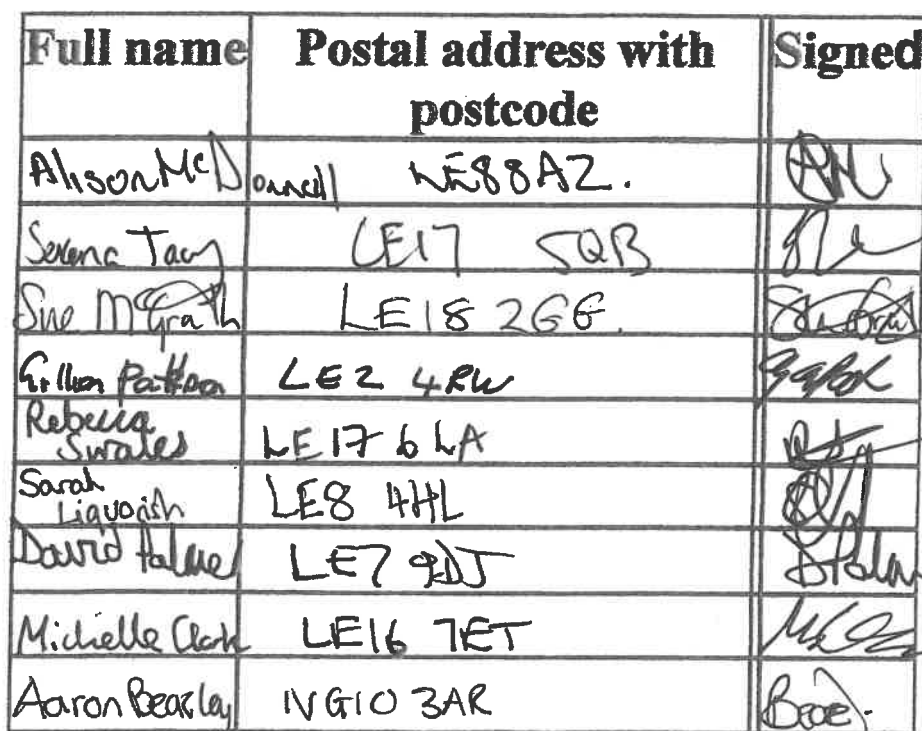 Full name Postal address with postcode Signed
Alison McDonnell LE88AZ.
Serena Tacy LE17 5QB
Sue McGrath LE18 2GG.
Gillian Pattison LE2 4RW
Rebecca Swales LE17 6LA
Sarah Liquorish LE8 4HL
David Palmer LE7 9DJ
Michelle Clark LE16 7ET
Aaron Beazley NG10 3AR